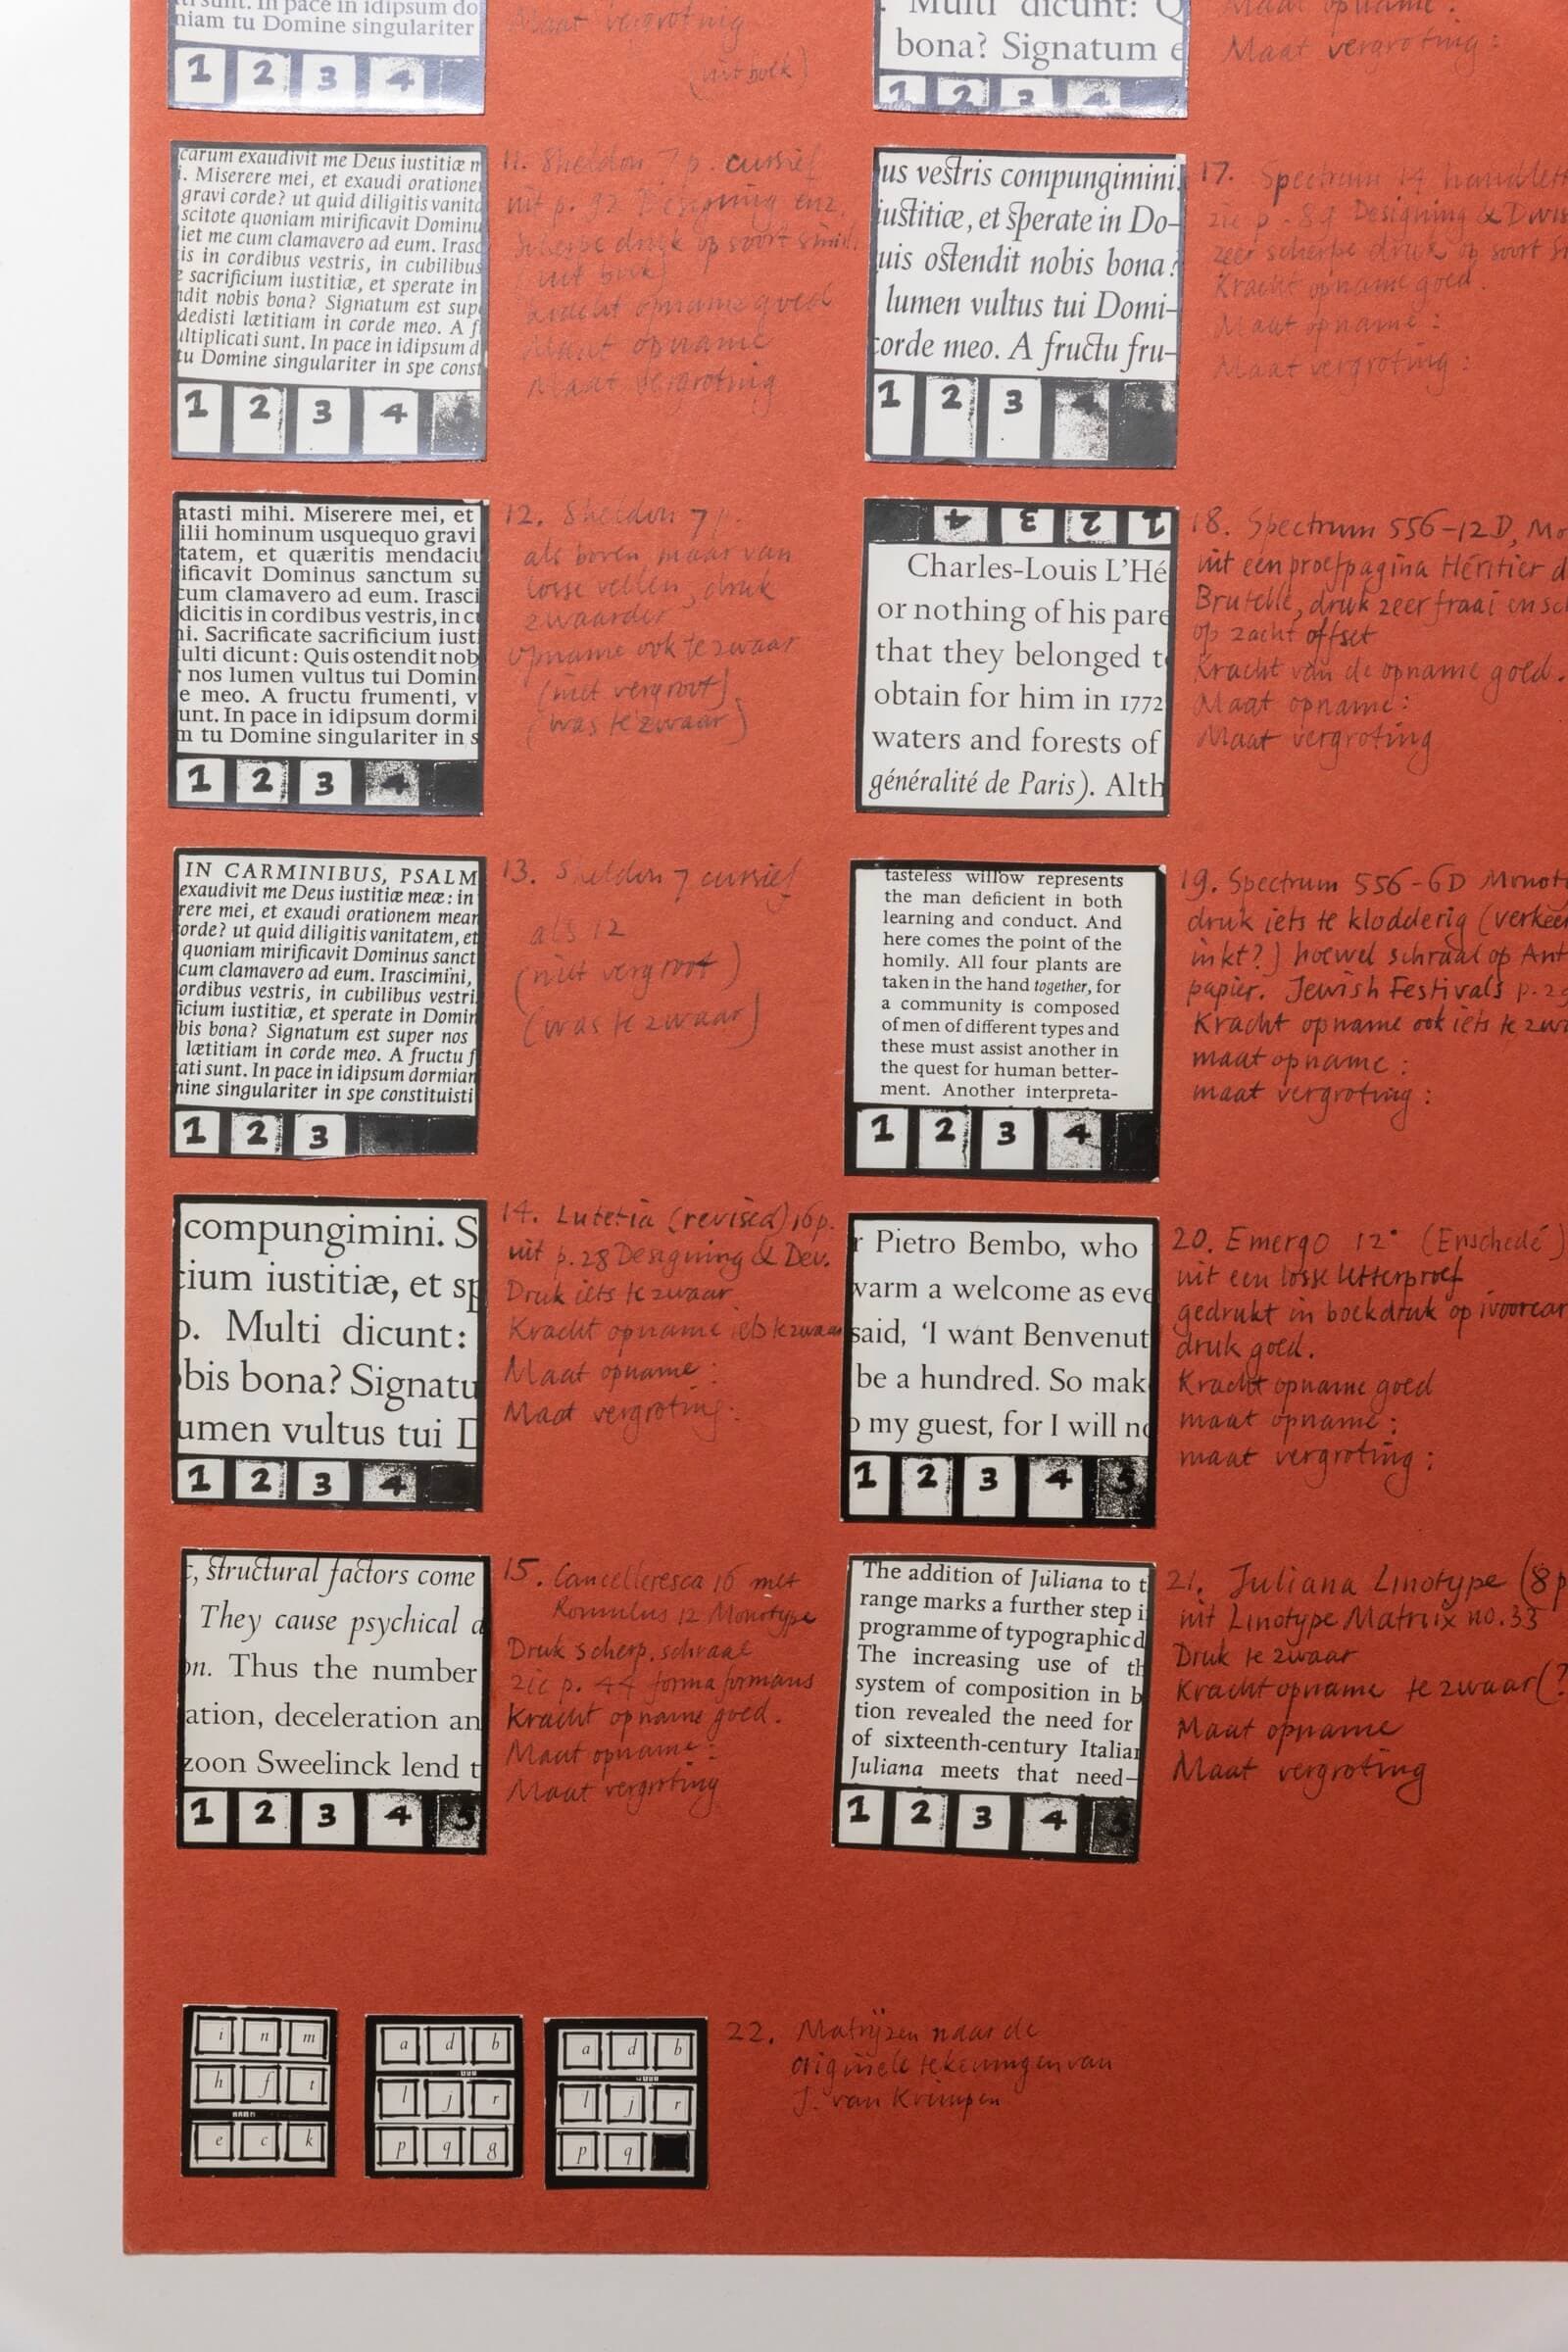 niam tu Domine singulariter
1 2 3 4
Maat vergroting
(uit boek)
Multi dicunt: Q
bona? Signatum e
1 2 3 4
Maat opname:
Maat vergroting:
carum exaudivit me Deus iustitiæ m
i. Miserere mei, et exaudi oratione
gravi corde? ut quid diligitis vanita
scitote quoniam mirificavit Dominu
iet me cum clamavero ad eum. Irasc
is in cordibus vestris, in cubilibus
e sacrificium iustitiæ, et sperate in
ndit nobis bona? Signatum est sup
dedisti lætitiam in corde meo. A f
ultiplicati sunt. In pace in idipsum d
tu Domine singulariter in spe const
1 2 3 4 5
11. Sheldon 7 p. cursief
uit p. 92 Designing enz.
scherpe druk op soort
(uit boek)
Kracht opname goed
Maat opname
Maat vergroting
atasti mihi. Miserere mei, et
ilii hominum usquequo gravi
tatem, et quæritis mendaciu
ificavit Dominus sanctum su
cum clamavero ad eum. Irasci
dicitis in cordibus vestris, in cu
ni. Sacrificate sacrificium iusti
ulti dicunt: Quis ostendit nob
nos lumen vultus tui Domin
e meo. A fructu frumenti, v
unt. In pace in idipsum dormi
m tu Domine singulariter in s
1 2 3 4
12. Sheldon 7 p.
als boven maar van
losse vellen, druk
zwaarder
opname ook te zwaar
(niet vergroot)
(was te zwaar)
IN CARMINIBUS, PSALM
exaudivit me Deus iustitiæ meæ: in
rere mei, et exaudi orationem mean
orde? ut quid diligitis vanitatem, et
quoniam mirificavit Dominus sanct
cum clamavero ad eum. Irascimini,
ordibus vestris, in cubilibus vestri
icium iustitiæ, et sperate in Domin
bis bona? Signatum est super nos
lætitiam in corde meo. A fructu f
ati sunt. In pace in idipsum dormian
nine singulariter in spe constituisti
1 2 3
13. Sheldon 7 cursief
als 12
(niet vergroot)
(was te zwaar)
compungimini. S
cium iustitiæ, et sp
o. Multi dicunt:
obis bona? Signatu
umen vultus tui D
1 2 3 4
14. Lutetia (revised) 16 p.
uit p. 28 Designing & Dev.
Druk iets te zwaar
Kracht opname iets te zwaar
Maat opname:
Maat vergroting:
, structural factors come
They cause psychical a
on. Thus the number
ation, deceleration an
zoon Sweelinck lend t
1 2 3 4 5
15. Cancelleresca 16 met
Romulus 12 Monotype
Druk scherp, schraal
zie p. 44 forma formans
Kracht opname goed.
Maat opname:
Maat vergroting
us vestris compungimini.
iustitiæ, et sperate in Do-
uis ostendit nobis bona?
lumen vultus tui Domi-
corde meo. A fructu fru-
1 2 3 4
17. Spectrum 14 handlett
zie p. 89 Designing &
zeer scherpe druk op soort
Kracht opname goed.
Maat opname:
Maat vergroting:
4 3 2 1
Charles-Louis L'Hé
or nothing of his pare
that they belonged t
obtain for him in 1772
waters and forests of
généralité de Paris). Alth
18. Spectrum 556-12 D, Mo
uit een proefpagina Héritier d
Brutelle, druk zeer fraai en sc
op zacht offset
Kracht van de opname goed.
Maat opname:
Maat vergroting
tasteless willow represents
the man deficient in both
learning and conduct. And
here comes the point of the
homily. All four plants are
taken in the hand together, for
a community is composed
of men of different types and
these must assist another in
the quest for human better-
ment. Another interpreta-
1 2 3 4
19. Spectrum 556-6D Monot
druk iets te klodderig (verkeer
inkt?) hoewel schraal op Ant
papier. Jewish Festivals p. 2
Kracht opname ook iets te zw
maat opname:
maat vergroting:
r Pietro Bembo, who
warm a welcome as eve
said, 'I want Benvenut
be a hundred. So mak
o my guest, for I will no
1 2 3 4 5
20. Emergo 12° (Enschedé)
uit een losse letterproef
gedrukt in boekdruk op ivoorcar
druk goed.
Kracht opname goed
maat opname:
maat vergroting:
The addition of Juliana to t
range marks a further step i
programme of typographic d
The increasing use of th
system of composition in b
tion revealed the need for
of sixteenth-century Italian
Juliana meets that need—
1 2 3 4 5
21. Juliana Linotype (8 p
uit Linotype Matrix no. 33
Druk te zwaar
Kracht opname te zwaar (?
Maat opname
Maat vergroting
i n m
h f t
e c k
a d b
l j r
p q g
a d b
l j r
p q
22. Matrijzen naar de
originele tekeningen van
J. van Krimpen